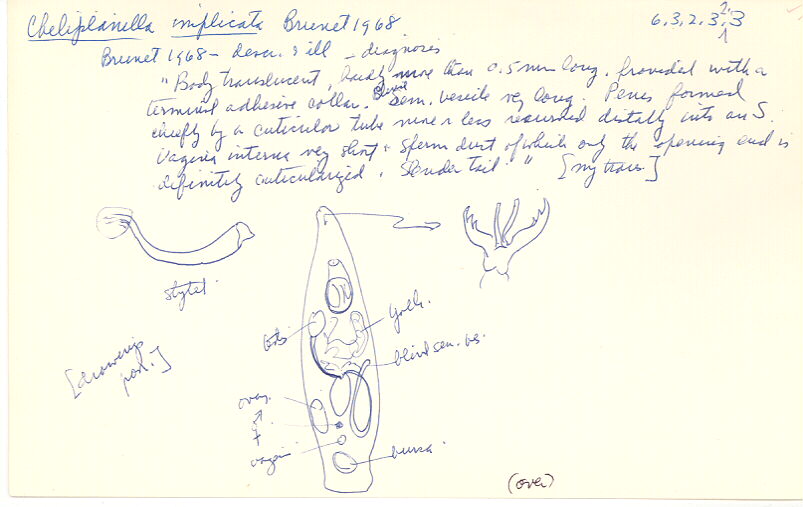 Cheliplanella implicata Brunet 1968
6, 3, 2, 3, 2, 3
Brunet 1968 - descr. & ill - diagnosis
"Body translucent, hardly more than 0.5 mm long, provided with a
terminal adhesive collar. Blind sem. vesicle very long. Penis formed
chiefly by a cuticular tube more or less recurved distally into an S.
Vagina interna very short & sperm duct of which only the opening end is
definitely cuticularized. Slender tail." [my trans.]
stylet
[drawings
post.]
testis
yolk.
blind sem. ves.
ovary
vagina
bursa
(over)